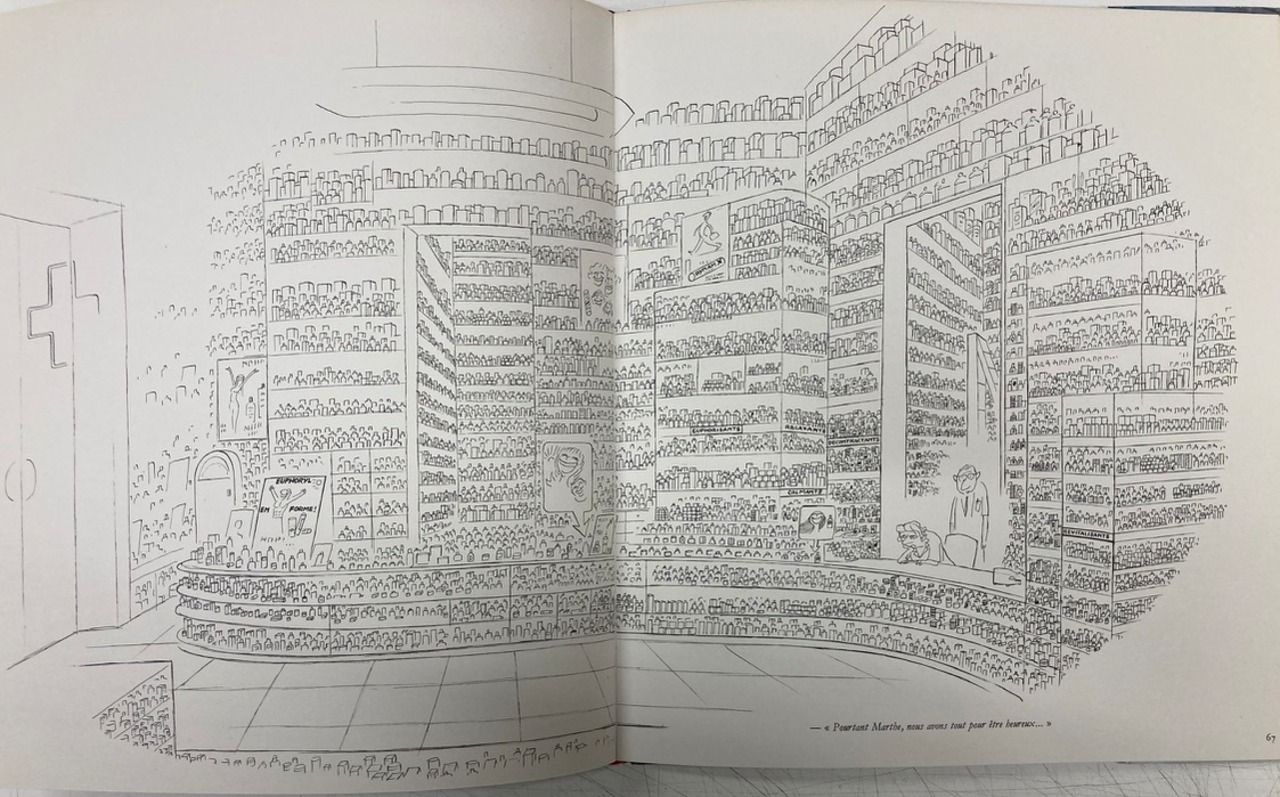 EUPHORYL
EN FORME!
EUPHORISANTS
RELAXANTS
DÉCONTRACTANTS
CALMANTS
REVITALISANTS
— « Pourtant Marthe, nous avons tout pour être heureux... »
67